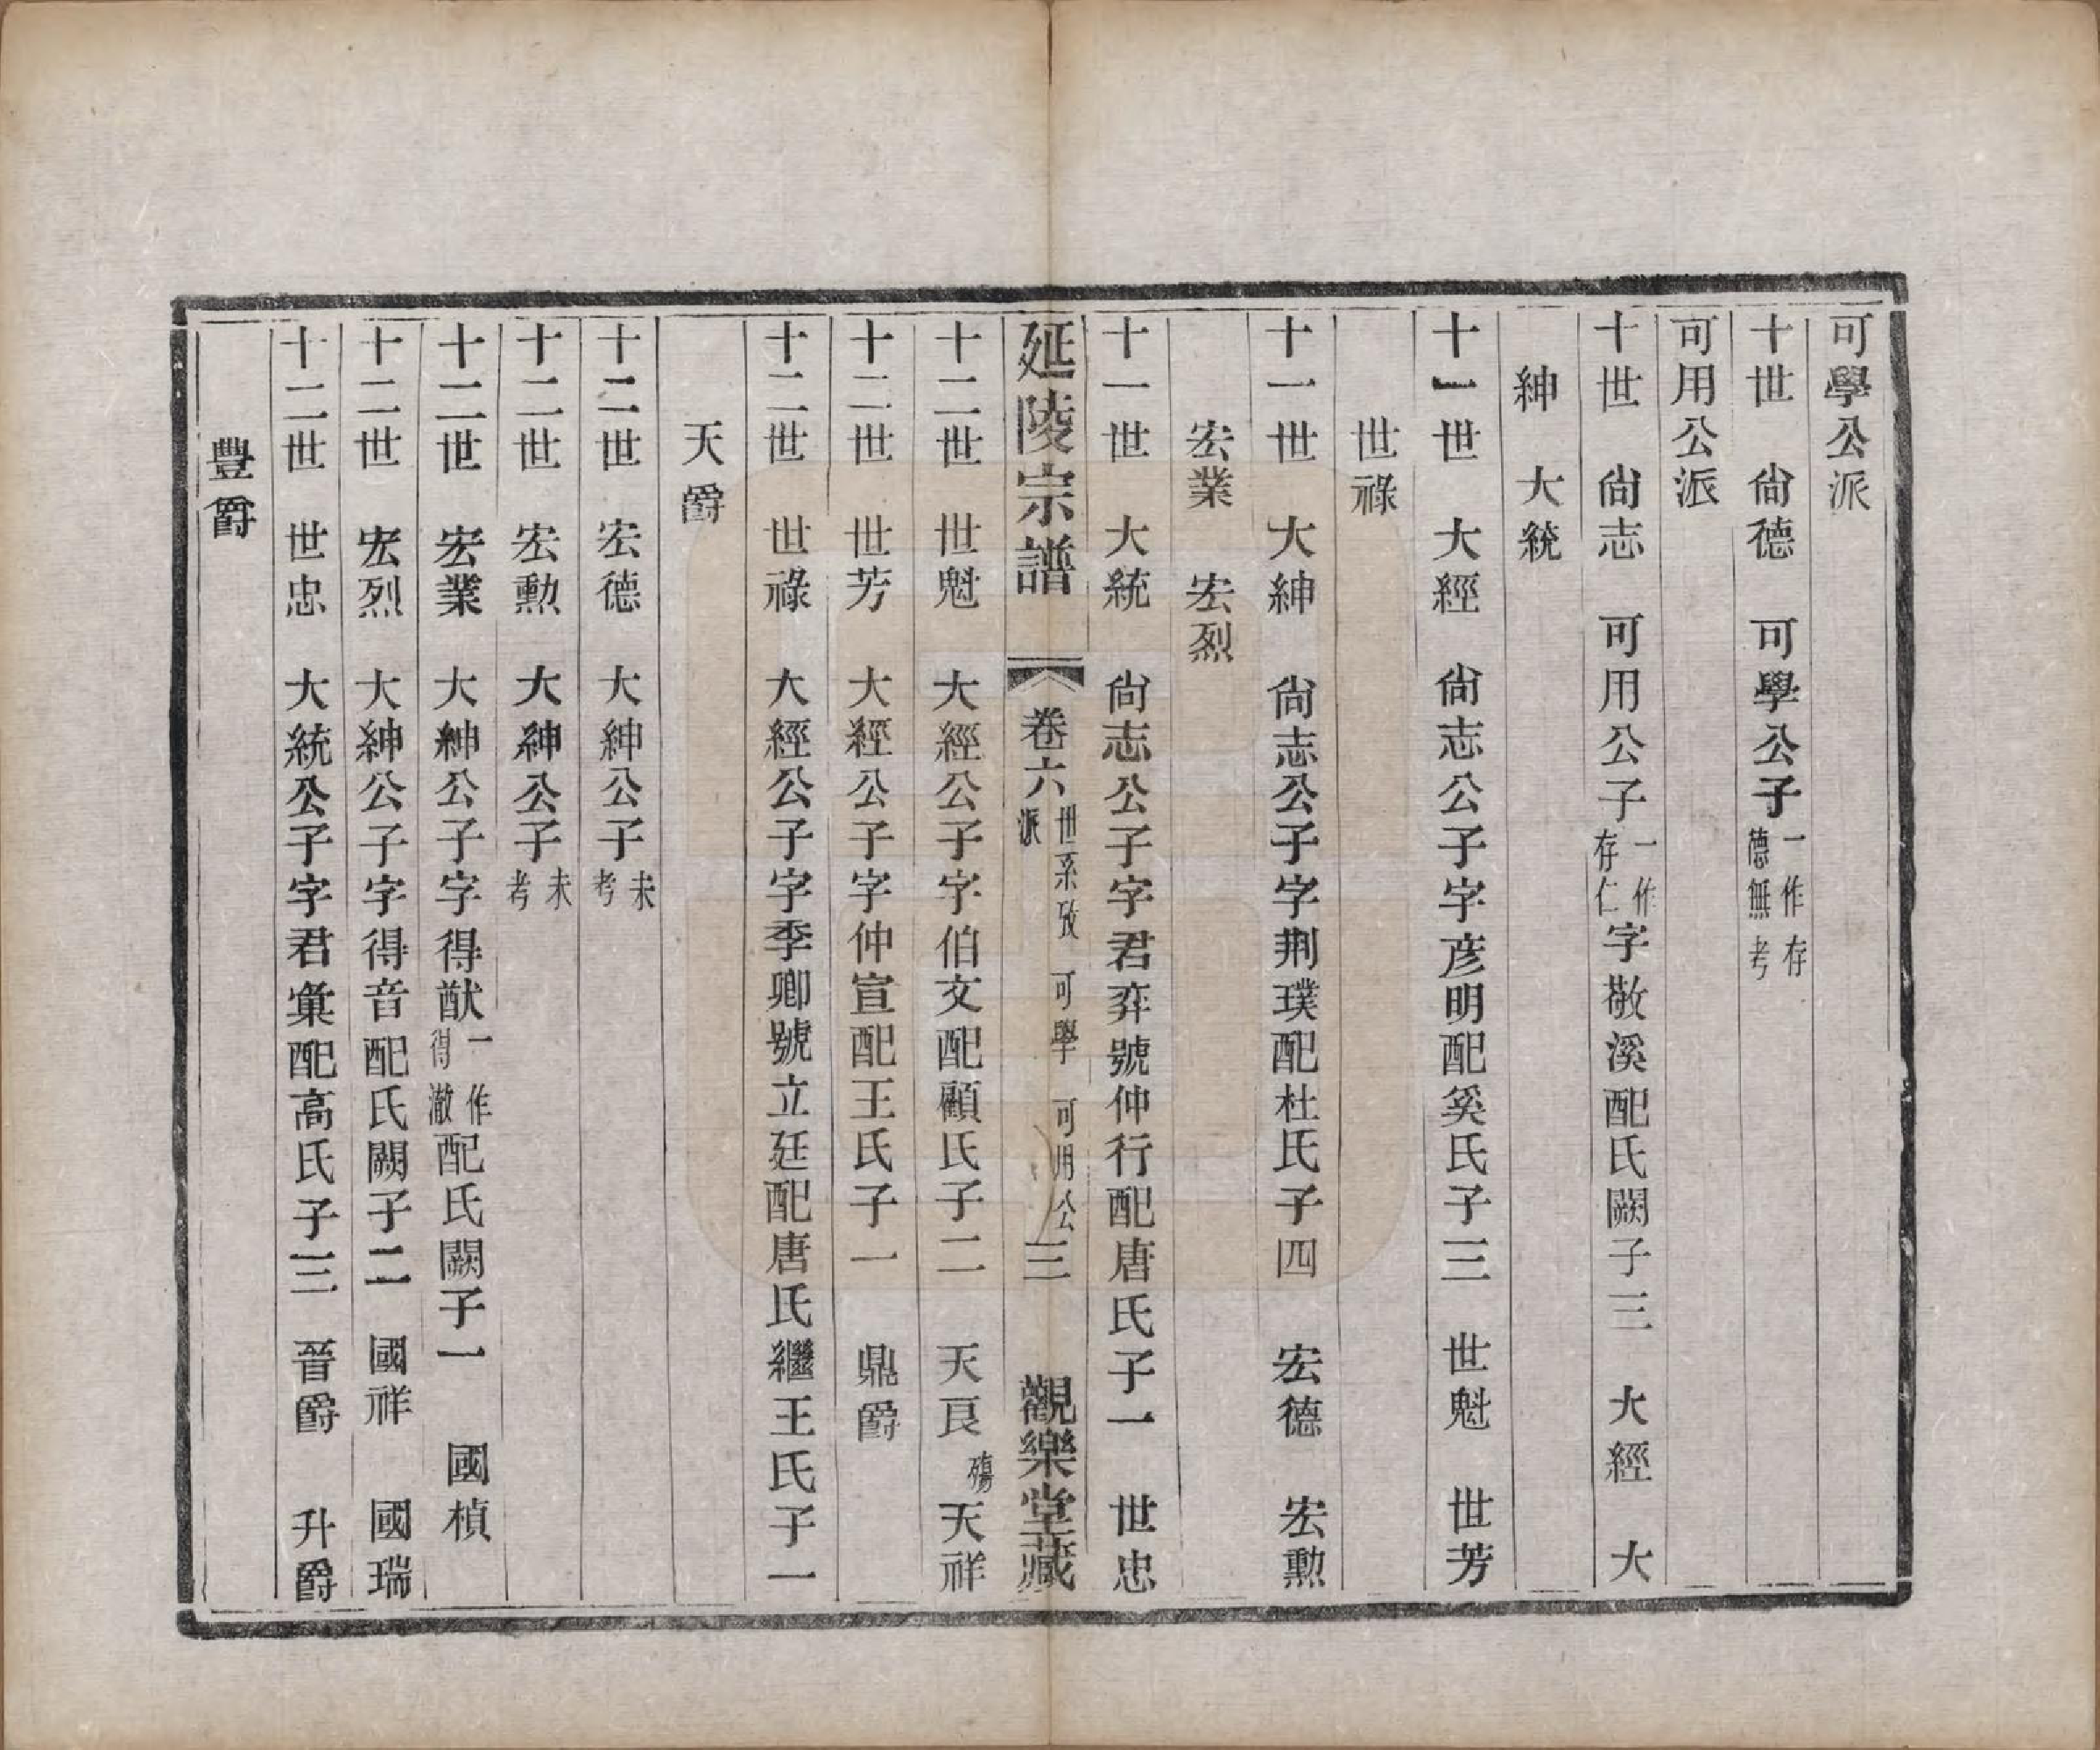 可學公派
十世　尙德　可學公子一作存德無考
可用公派
十世　尙志　可用公子一作存仁字敬溪配氏闕子三　大經　大
紳　大統
十一世　大經　尙志公子字彦明配奚氏子三　世魁　世芳
世祿
十一世　大紳　尙志公子字荆璞配杜氏子四　宏德　宏勲
宏業　宏烈
十一世　大統　尙志公子字君弈號仲行配唐氏子一　世忠
延陵宗譜　卷六　世系攷　可學　可用公派　三　觀樂堂藏
十二世　世魁　大經公子字伯文配顧氏子二　天良殤　天祥
十二世　世芳　大經公子字仲宣配王氏子一　鼎爵
十二世　世祿　大經公子字季卿號立廷配唐氏繼王氏子一
天爵
十二世　宏德　大紳公子未考
十二世　宏勲　大紳公子未考
十二世　宏業　大紳公子字得猷一作得澈配氏闕子一　國楨
十二世　宏烈　大紳公子字得音配氏闕子二　國祥　國瑞
十二世　世忠　大統公子字君彙配高氏子三　晉爵　升爵
豊爵